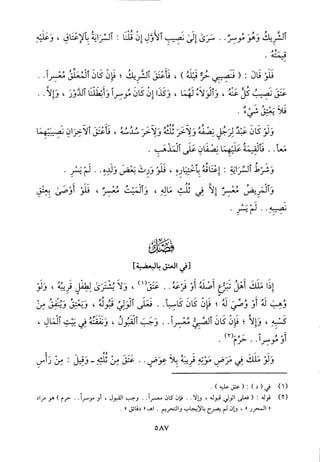 الشَّرِيكُ وَهُوَ مُوسِرٌ.. سَرَىٰ إِلَىٰ نَصِيبِ الْأَوَّلِ إِنْ قُلْنَا : السِّرَايَةُ بِالْإِعْتَاقِ ، وَعَلَيْهِ
قِيمَتُهُ .
فَلَوْ قَالَ : ( فَنَصِيبِي حُرٌّ قَبْلَهُ ) ، فَأَعْتَقَ الشَّرِيكُ ؛ فَإِنْ كَانَ الْمُعَلِّقُ مُعْسِراً..
عَتَقَ نَصِيبُ كُلٍّ عَنْهُ ، وَالْوَلَاءُ لَهُمَا ، وَكَذَا إِنْ كَانَ مُوسِراً وَأَبْطَلْنَا الدَّوْرَ ، وَإِلَّا..
فَلَا يَعْتِقُ شَيْءٌ .
وَلَوْ كَانَ عَبْدٌ لِرَجُلٍ نِصْفُهُ وَلِآخَرَ ثُلُثُهُ وَلِآخَرَ سُدُسُهُ ، فَأَعْتَقَ الْآخِرَانِ نَصِيبَهُمَا
مَعاً.. فَالْقِيمَةُ عَلَيْهِمَا نِصْفَانِ عَلَى الْمَذْهَبِ .
وَشَرْطُ السِّرَايَةِ : إِعْتَاقُهُ بِاخْتِيَارِهِ ، فَلَوْ وَرِثَ بَعْضَ وَلَدِهِ.. لَمْ يَسْرِ .
وَالْمَرِيضُ مُعْسِرٌ إِلَّا فِي ثُلُثِ مَالِهِ ، وَالْمَيْتُ مُعْسِرٌ ، فَلَوْ أَوْصَىٰ بِعِتْقِ
نَصِيبِهِ.. لَمْ يَسْرِ .
فَصْلٌ
[في العتق بالبعضية]
إِذَا مَلَكَ أَهْلُ تَبَرُّعٍ أَصْلَهُ أَوْ فَرْعَهُ.. عَتَقَ(١) ، وَلَا يُشْتَرَىٰ لِطِفْلٍ قَرِيبُهُ ، وَلَوْ
وُهِبَ لَهُ أَوْ وُصِّيَ لَهُ ؛ فَإِنْ كَانَ كَاسِباً.. فَعَلَى الْوَلِيِّ قَبُولُهُ ، وَيَعْتِقُ وَيُنْفِقُ مِنْ
كَسْبِهِ ، وَإِلَّا ؛ فَإِنْ كَانَ الصَّبِيُّ مُعْسِراً.. وَجَبَ الْقَبُولُ ، وَنَفَقَتُهُ فِي بَيْتِ الْمَالِ ،
أَوْ مُوسِراً.. حَرُمَ(٢) .
وَلَوْ مَلَكَ فِي مَرَضِ مَوْتِهِ قَرِيبَهُ بِلَا عِوَضٍ.. عَتَقَ مِنْ ثُلُثِهِ - وَقِيلَ : مِنْ رَأْسِ
(١) في ( د ) : ( عتق عليه ) .
(٢) قوله : ( فعلى الولي قبوله ، وإلا.. فإن كان معسراً.. وجب القبول ، أو موسراً.. حرم ) هو مراد
« المحرر » ، وإن لم يصرح بالإيجاب والتحريم . اهـ « دقائق » .
٥٨٧